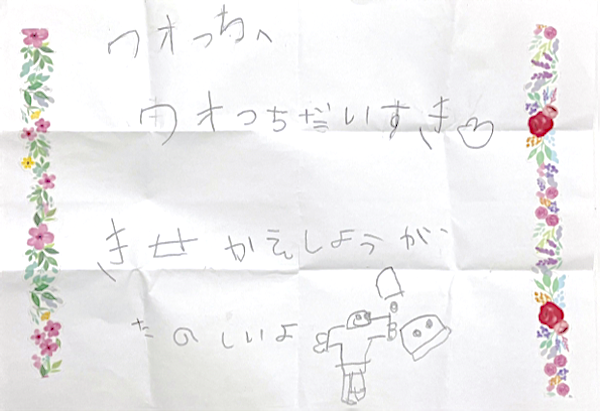 ウオっちへ
ウオっちだいすき♡
きせかえしようが
たのしいよ